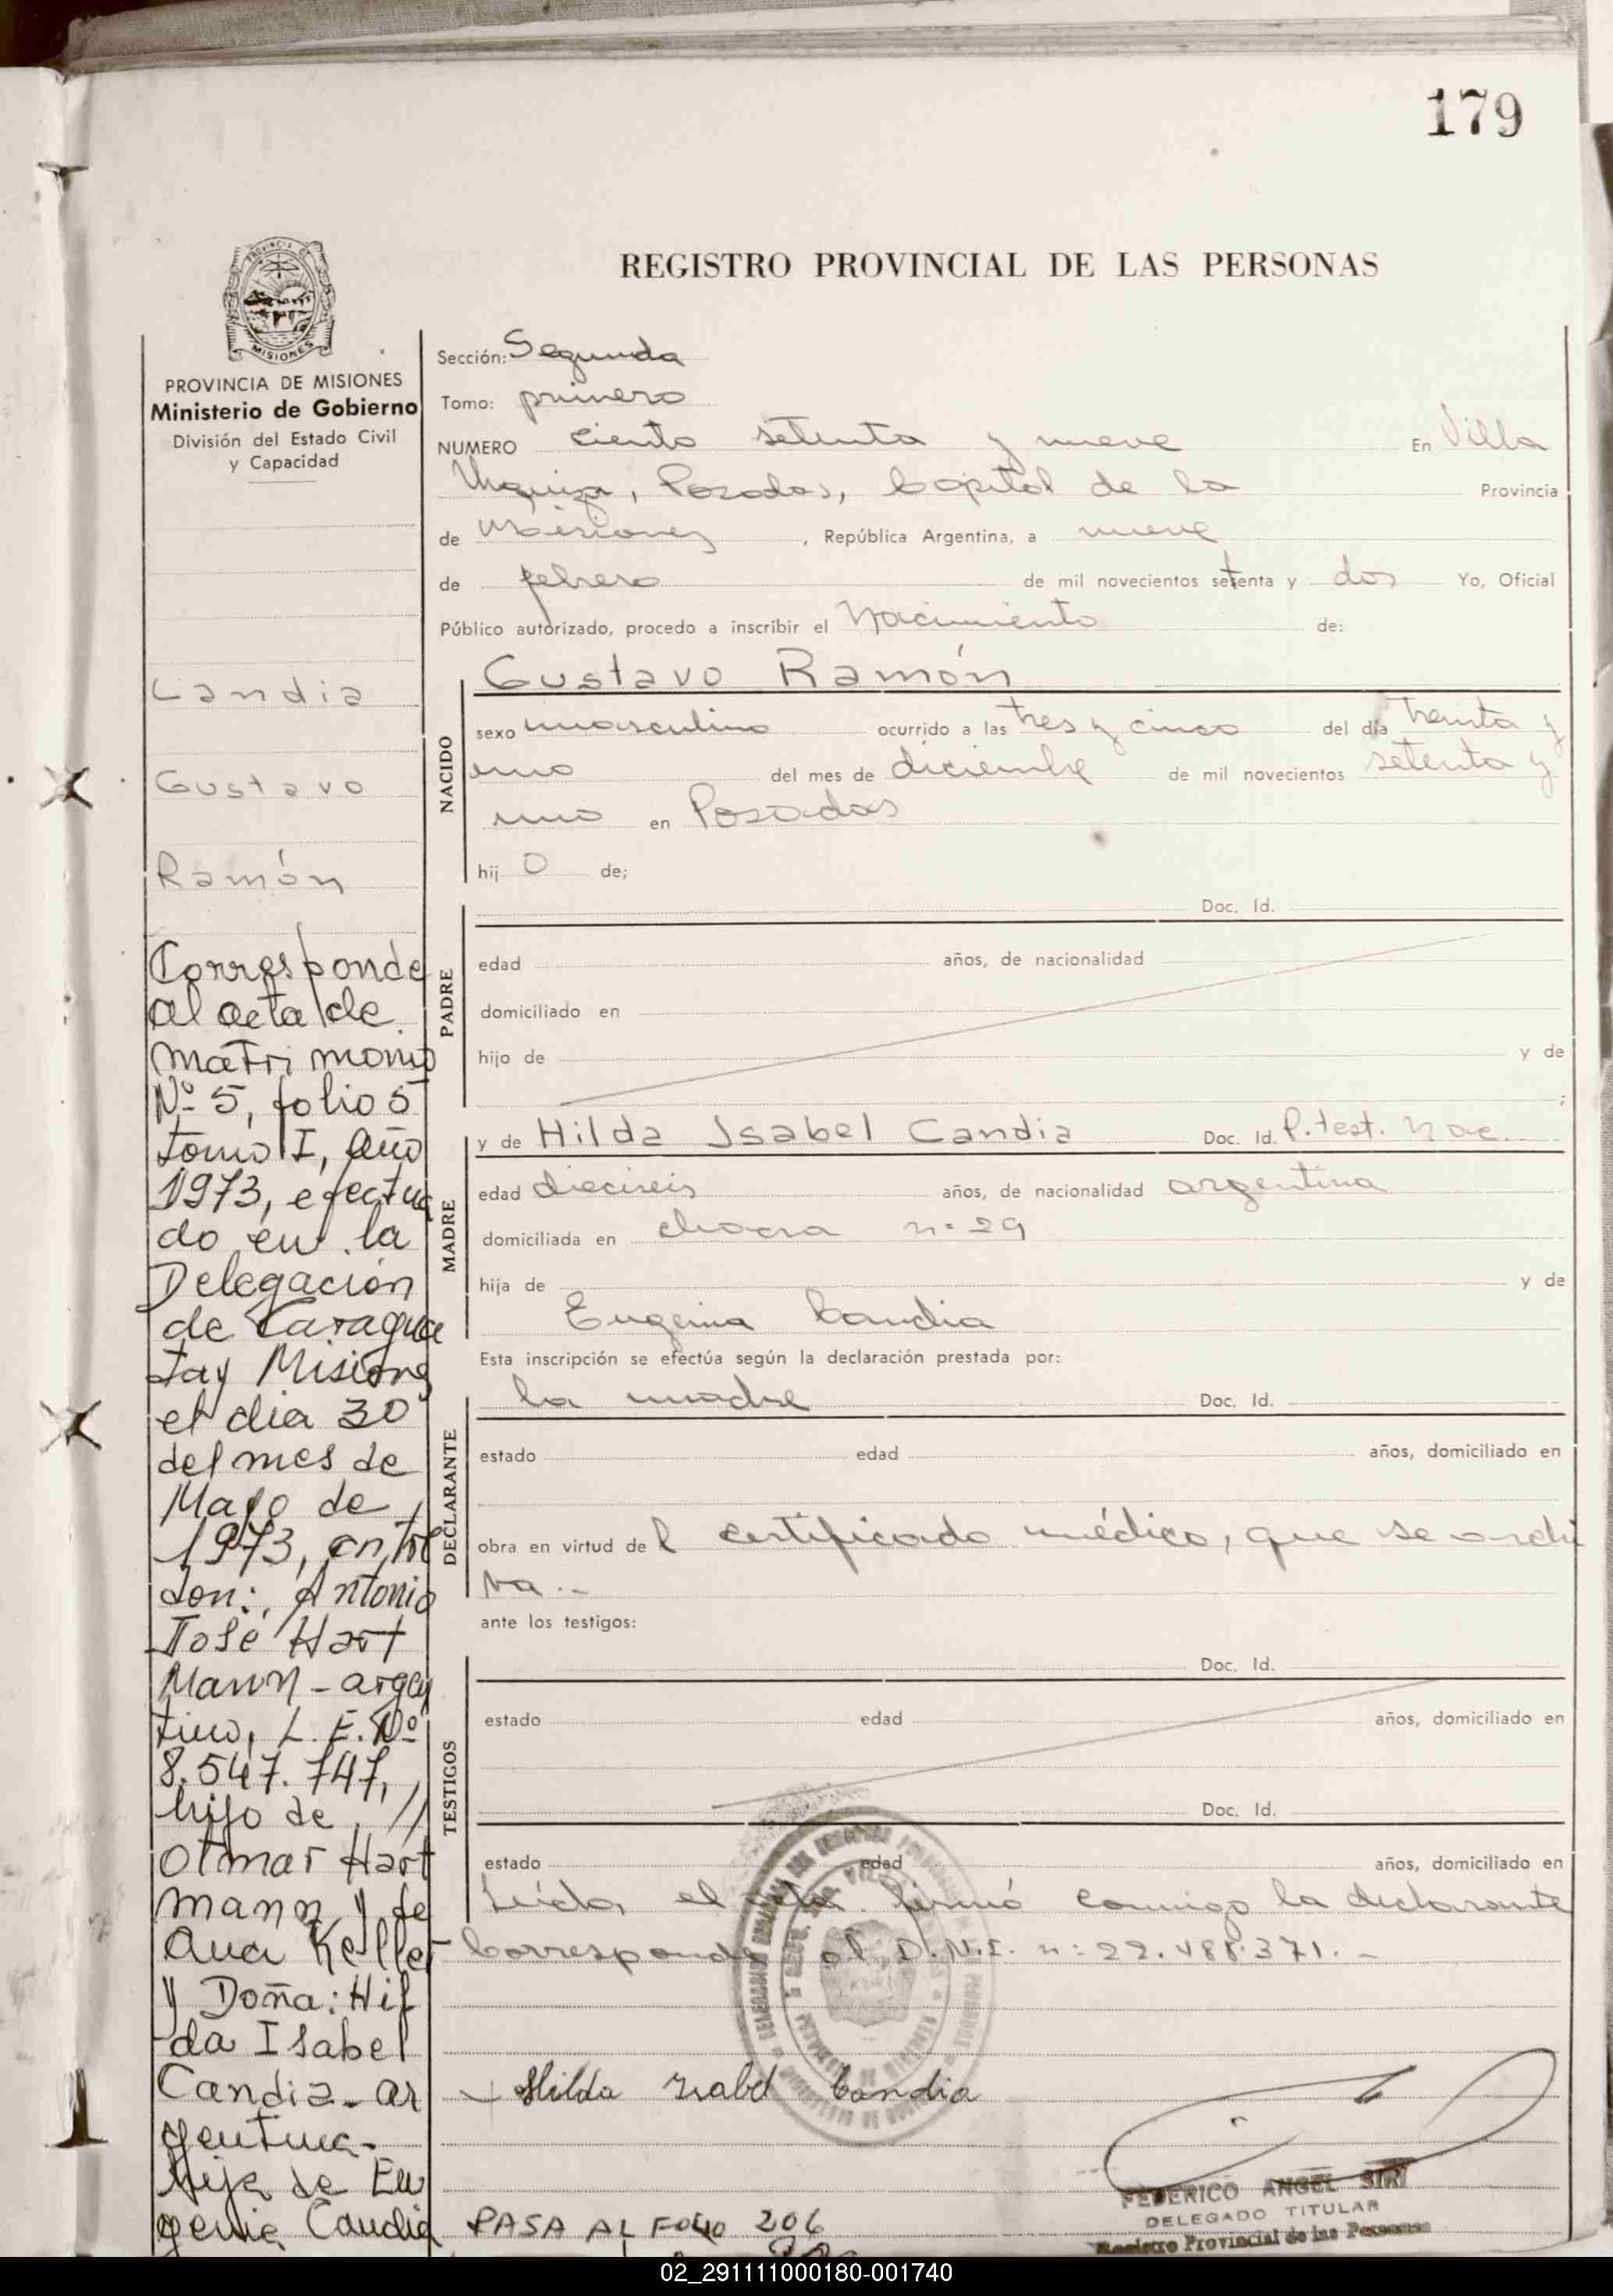 179
REGISTRO PROVINCIAL DE LAS PERSONAS
MISIONES
PROVINCIA DE MISIONES
Ministerio de Gobierno
División del Estado Civil
y Capacidad
Candia
Gustavo
Ramón
Corresponde
al acta de
matrimonio
Nº 5, folio 5
tomo I, año
1973, efectua
do en la
Delegación
de Caragua
tay Misiones
el dia 30
del mes de
Mayo de
1973, entre
don: Antonio
José Hart
Mann - argen
tino, L. E. Nº
8.547.747,
hijo de //
Otmar Hart
mann y de
Ana Keller
y Doña: Hil
da Isabel
Candia - ar
gentina -
hija de Eu
genia Candia
Sección: Segunda
Tomo: primero
NUMERO ciento setenta y nueve En Villa
Urquiza, Posadas, Capital de la Provincia
de Misiones, República Argentina, a nueve
de febrero de mil novecientos setenta y dos Yo, Oficial
Público autorizado, procedo a inscribir el Nacimiento de:
NACIDO
Gustavo Ramón
sexo masculino ocurrido a las tres y cinco del día treinta y
uno del mes de diciembre de mil novecientos setenta y
uno en Posadas
hijo de;
PADRE
Doc. Id.
edad años, de nacionalidad
domiciliado en
hijo de y de
;
MADRE
y de Hilda Isabel Candia Doc. Id. P. test. nac.
edad dieciseis años, de nacionalidad argentina
domiciliada en chacra n= 29
hija de y de
Eugenia Candia
Esta inscripción se efectúa según la declaración prestada por:
DECLARANTE
la madre Doc. Id.
estado edad años, domiciliado en
obra en virtud del certificado médico, que se archi
va.-
ante los testigos:
TESTIGOS
Doc. Id.
estado edad años, domiciliado en
Doc. Id.
estado edad años, domiciliado en
Leída el acta firmó conmigo la declarante
Corresponde al D.N.I. n: 22.488.371.-
Hilda Isabel Candia
FEDERICO ANGEL SIRI
DELEGADO TITULAR
Registro Provincial de las Personas
PASA AL FOLIO 206
02_291111000180-001740